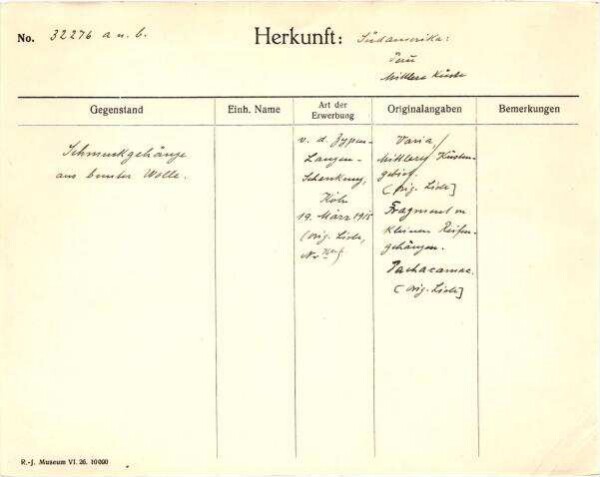 No. 32276 a u. b.
Herkunft: Südamerika:
Perú
Mittlere Küste
Gegenstand
Einh. Name
Art der
Erwerbung
Originalangaben
Bemerkungen
Schmuckgehänge
aus bunter Wolle.
v. d. Zypen-
Langen-
Schenkung,
Köln
19. März 1915
(orig. Liste,
No
Varia
Mittlere Küsten-
gebiet.
(orig. Liste]
Fragment m
kleinen Reifen-
gehängen.
Pachacamac.
(orig. Liste]
R.-J. Museum VI. 26. 10000